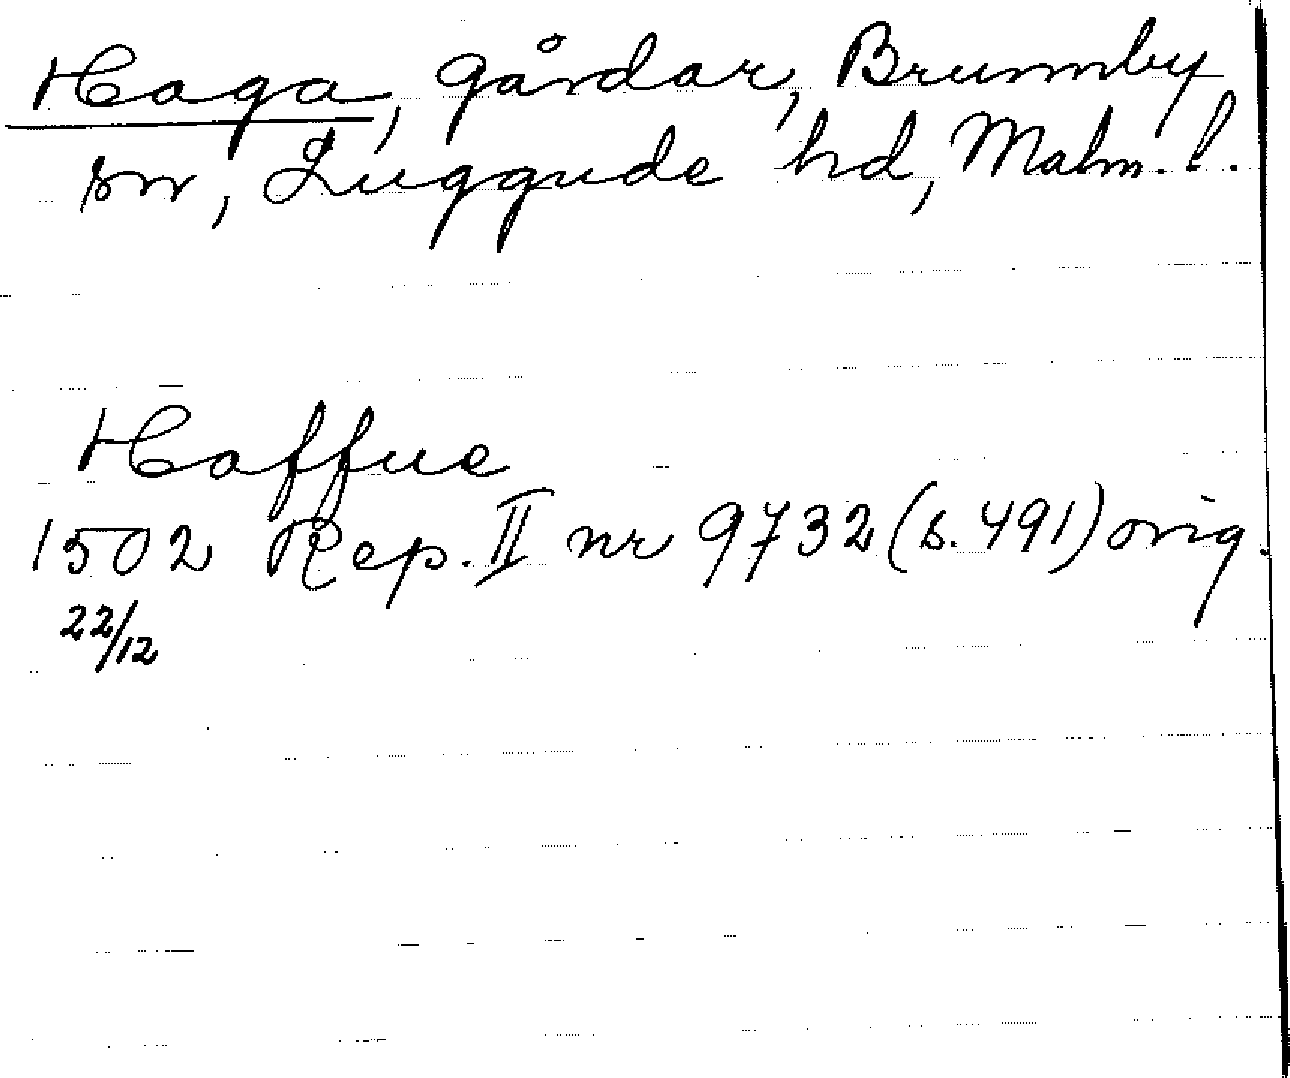 Haga, gårdar, Brunnby
sn, Luggude hd, Malm. l.
Haffue
1502 Rep. II nr 9732 (s. 491) orig.
22/12